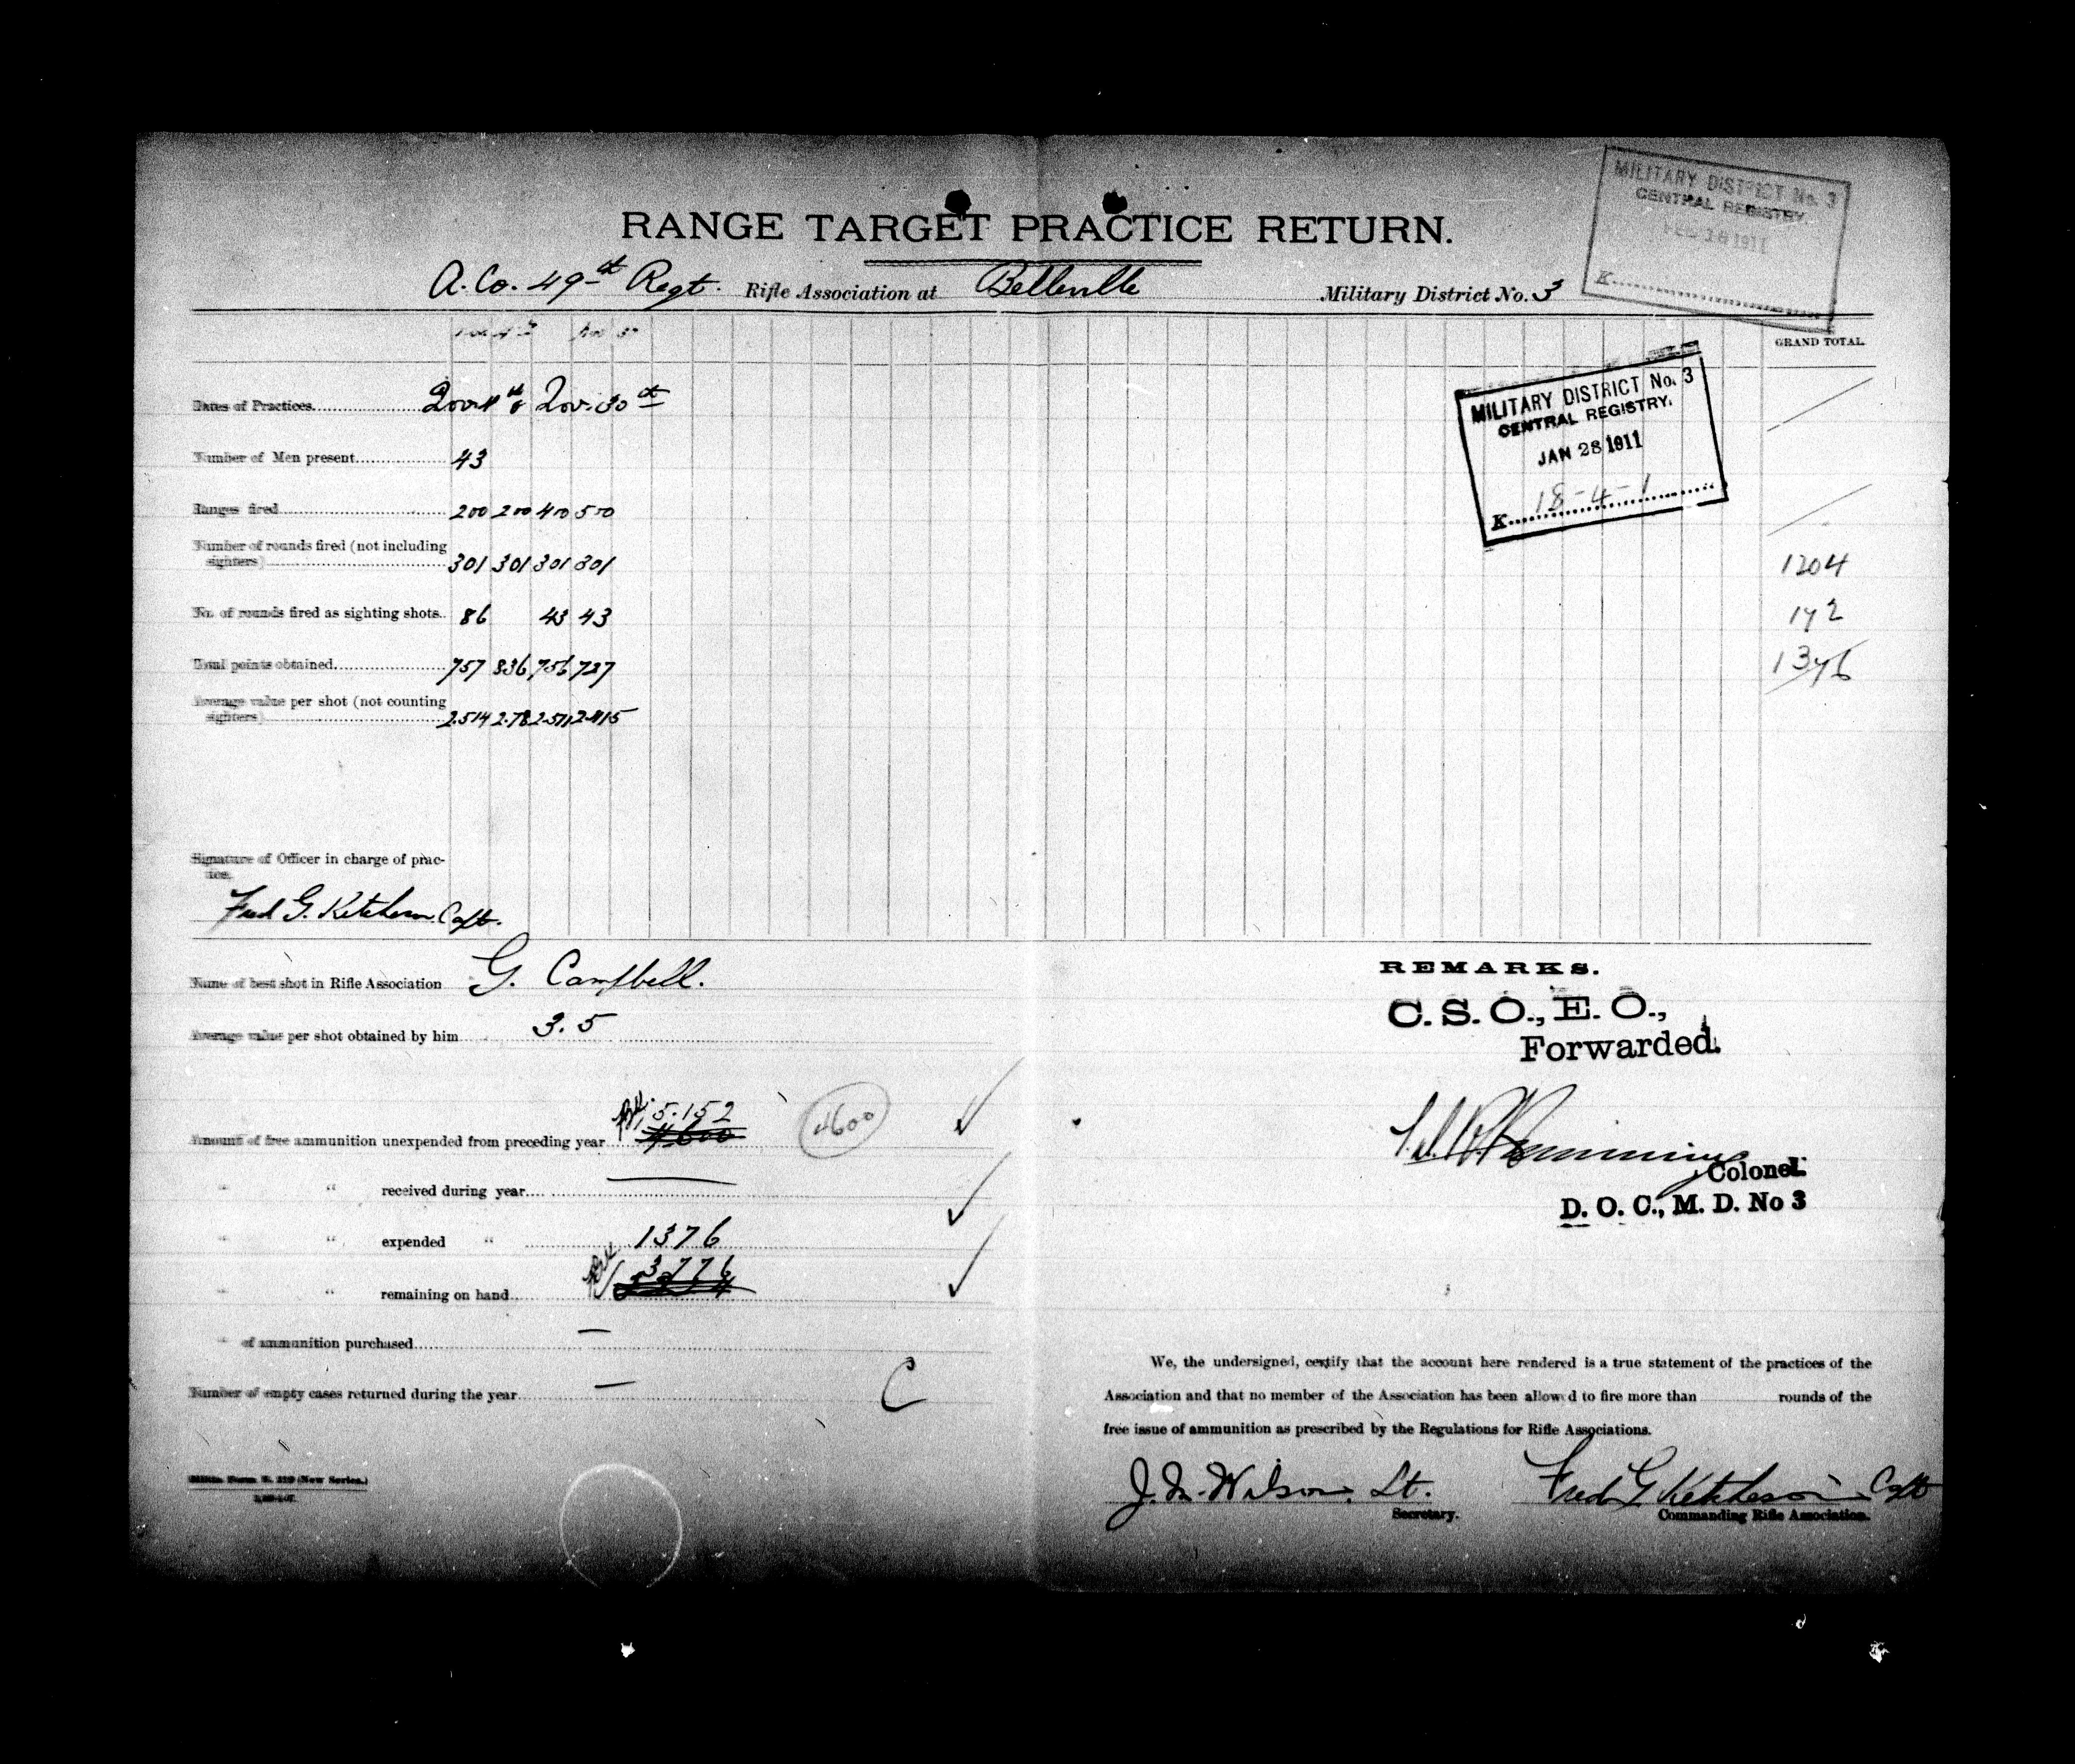 MILITARY DISTRICT No. 3
CENTRAL REGISTRY.
FEB 1911
K
RANGE TARGET PRACTICE RETURN.
A. Co. 49th Regt. Rifle Association at Belleville Military District No. 3
GRAND TOTAL
MILITARY DISTRICT No. 3
CENTRAL REGISTRY.
JAN 28 1911
K 18-4-1
Dates of Practices Nov. 4th & Nov. 30th
Number of Men present 43
Ranges fired 200 200 400 500
Number of rounds fired (not including
sighters) 301 301 301 301 1204
No. of rounds fired as sighting shots 86 43 43 172
Total points obtained 757 836 756 727 1376
Average value per shot (not counting
sighters) 2.514 2.78 2.511 2.415
Signature of Officer in charge of prac-
tice.
Fred G. Ketcheson. Capt.
Name of best shot in Rifle Association G. Campbell.
Average value per shot obtained by him 3.5
5.152
Amount of free ammunition unexpended from preceding year 4600 4600
" " received during year
" " expended " 1376
3776
" " remaining on hand
" of ammunition purchased —
Number of empty cases returned during the year —
C
Militia Form B. (New Series.)
REMARKS.
C. S. O., E. O.,
Forwarded.
Colonel.
D. O. C., M. D. No 3
We, the undersigned, certify that the account here rendered is a true statement of the practices of the
Association and that no member of the Association has been allowed to fire more than rounds of the
free issue of ammunition as prescribed by the Regulations for Rifle Associations.
J. Wilson. Lt. Fred G Ketcheson Capt
Secretary. Commanding Rifle Association.